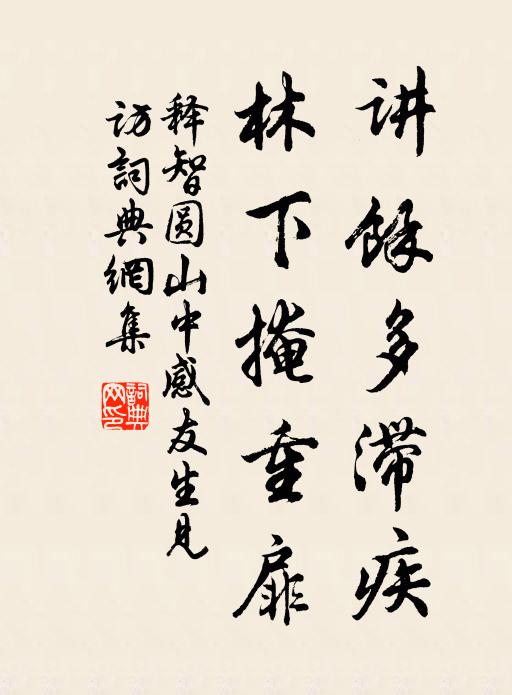 讲馀多滞疾
林下掩重扉
释智圆山中感友生见
访詞典網集
詞典網印